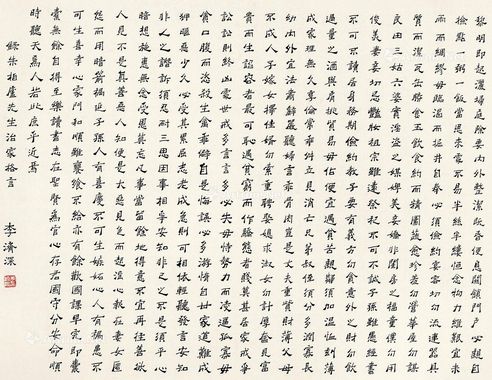 黎明即起灑掃庭除要內外整潔既昏便息關鎖門戶必親自
檢點一粥一飯當思來處不易半絲半縷恆念物力維艱宜未
雨而綢繆毋臨渴而掘井自奉必須儉約宴客切勿流連器具
質而潔瓦缶勝金玉飲食約而精園蔬愈珍羞勿營華屋勿謀
良田三姑六婆實淫盜之媒婢美妾嬌非閨房之福童僕勿用
俊美妻妾切忌豔妝祖宗雖遠祭祀不可不誠子孫雖愚經書
不可不讀居身務期儉樸教子要有義方勿貪意外之財勿飲
過量之酒與肩挑貿易毋佔便宜遇貧苦親鄰須加溫恤刻薄
成家理無久享倫常乖舛立見消亡兄弟叔侄須分多潤寡長
幼內外宜法肅辭嚴聽婦言乖骨肉豈是丈夫重貲財薄父母
不成人子嫁女擇佳婿毋索重聘娶媳求淑女勿計厚奩見富
貴而生諂容者最可恥遇貧窮而作驕態者賤莫甚居家戒爭
訟訟則終凶處世戒多言言多必失毋恃勢力而凌逼孤寡毋
貪口腹而恣殺生禽乖僻自是悔誤必多頹惰自甘家道難成
狎暱惡少久必受其累屈志老成急則可相依輕聽發言安知
非人之譖訴須忍耐三思因事相爭安知非我之不是須平心
暗想施惠無念受恩莫忘凡事當留餘地得意不宜再往善欲
人見不是真善惡人知便是大惡見色而起淫心報在妻女匿
怨而用暗箭禍延子孫人有喜慶不可生嫉妒心人有禍患不
可生喜幸心家門和順雖饔飧不給亦有餘歡國課早完即囊
橐無餘自得至樂讀書志在聖賢為官心存君國守分安命順
時聽天為人若此庶乎近焉
錄朱柏廬先生治家格言
李濟深